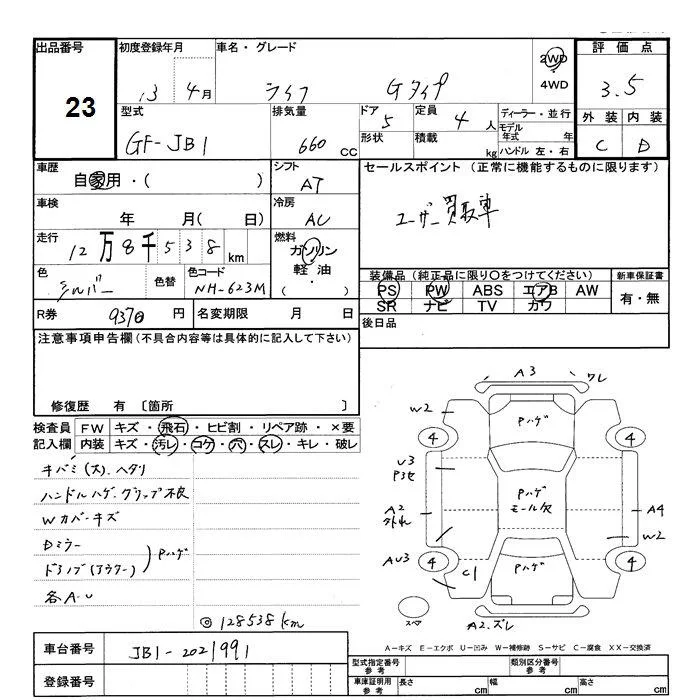 出品番号
23
初度登録年月
13 4月
車名・グレード
ライフ Gタイプ
2WD
4WD
評価点
3.5
外装 内装
C D
型式
GF-JB1
排気量
660 CC
ドア
5
定員
4 人
形状
積載
kg
ディーラー・並行
モデル年式 年
ハンドル 左・右
車歴
自家用・( )
シフト
AT
車検
年 月( 日)
冷房
AC
走行
12万8千538 km
燃料
ガソリン
軽油
( ・ )
色
シルバー
色替
色コード
NH-623M
R券
9370 円
名変期限
月 日
セールスポイント(正常に機能するものに限ります)
ユーザー買取車
装備品(純正品に限り○をつけてください)
PS PW ABS エアB AW
SR ナビ TV カワ
新車保証書
有・無
後日品
注意事項申告欄(不具合内容等は具体的に記入して下さい)
修復歴 有 〔箇所 〕
検査員記入欄
FW キズ・飛石・ヒビ割・リペア跡・×要
内装 キズ・汚レ・コゲ・穴・スレ・キレ・破レ
キバミ(大).ヘタリ
ハンドルハゲ.グリップ不良
Wカバーキズ
Dミラー
ドアノブ(アウター)
Pハゲ
各A・U
◎128538km
A3
ワレ
W2
Pハゲ
4
4
U3
Pハゲ
モール欠
A2
A4
W2
AU3
4
4
C1
Pハゲ
スペア
A2.ズレ
A-キズ E-エクボ U-凹み W-補修跡 S-サビ C-腐食 XX-交換済
車台番号
JB1-2021991
登録番号
型式指定番号
参考
類別区分番号
参考
車庫証明用
参考
長さ cm
幅 cm
高さ cm